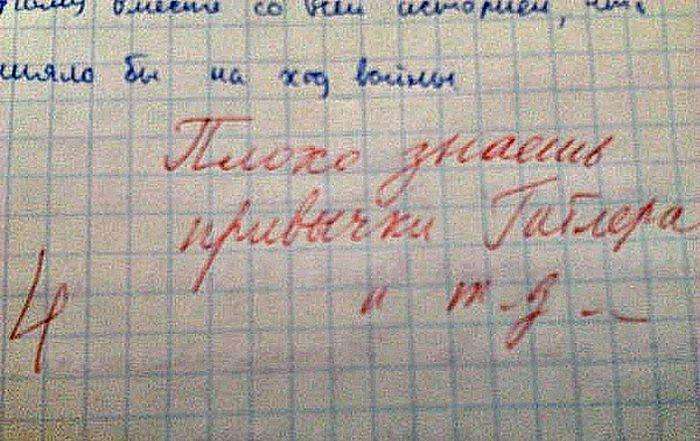 вместе со всей историей,
бы на ход войны
Плохо знаешь
привычки Гитлера
4 и т.д.